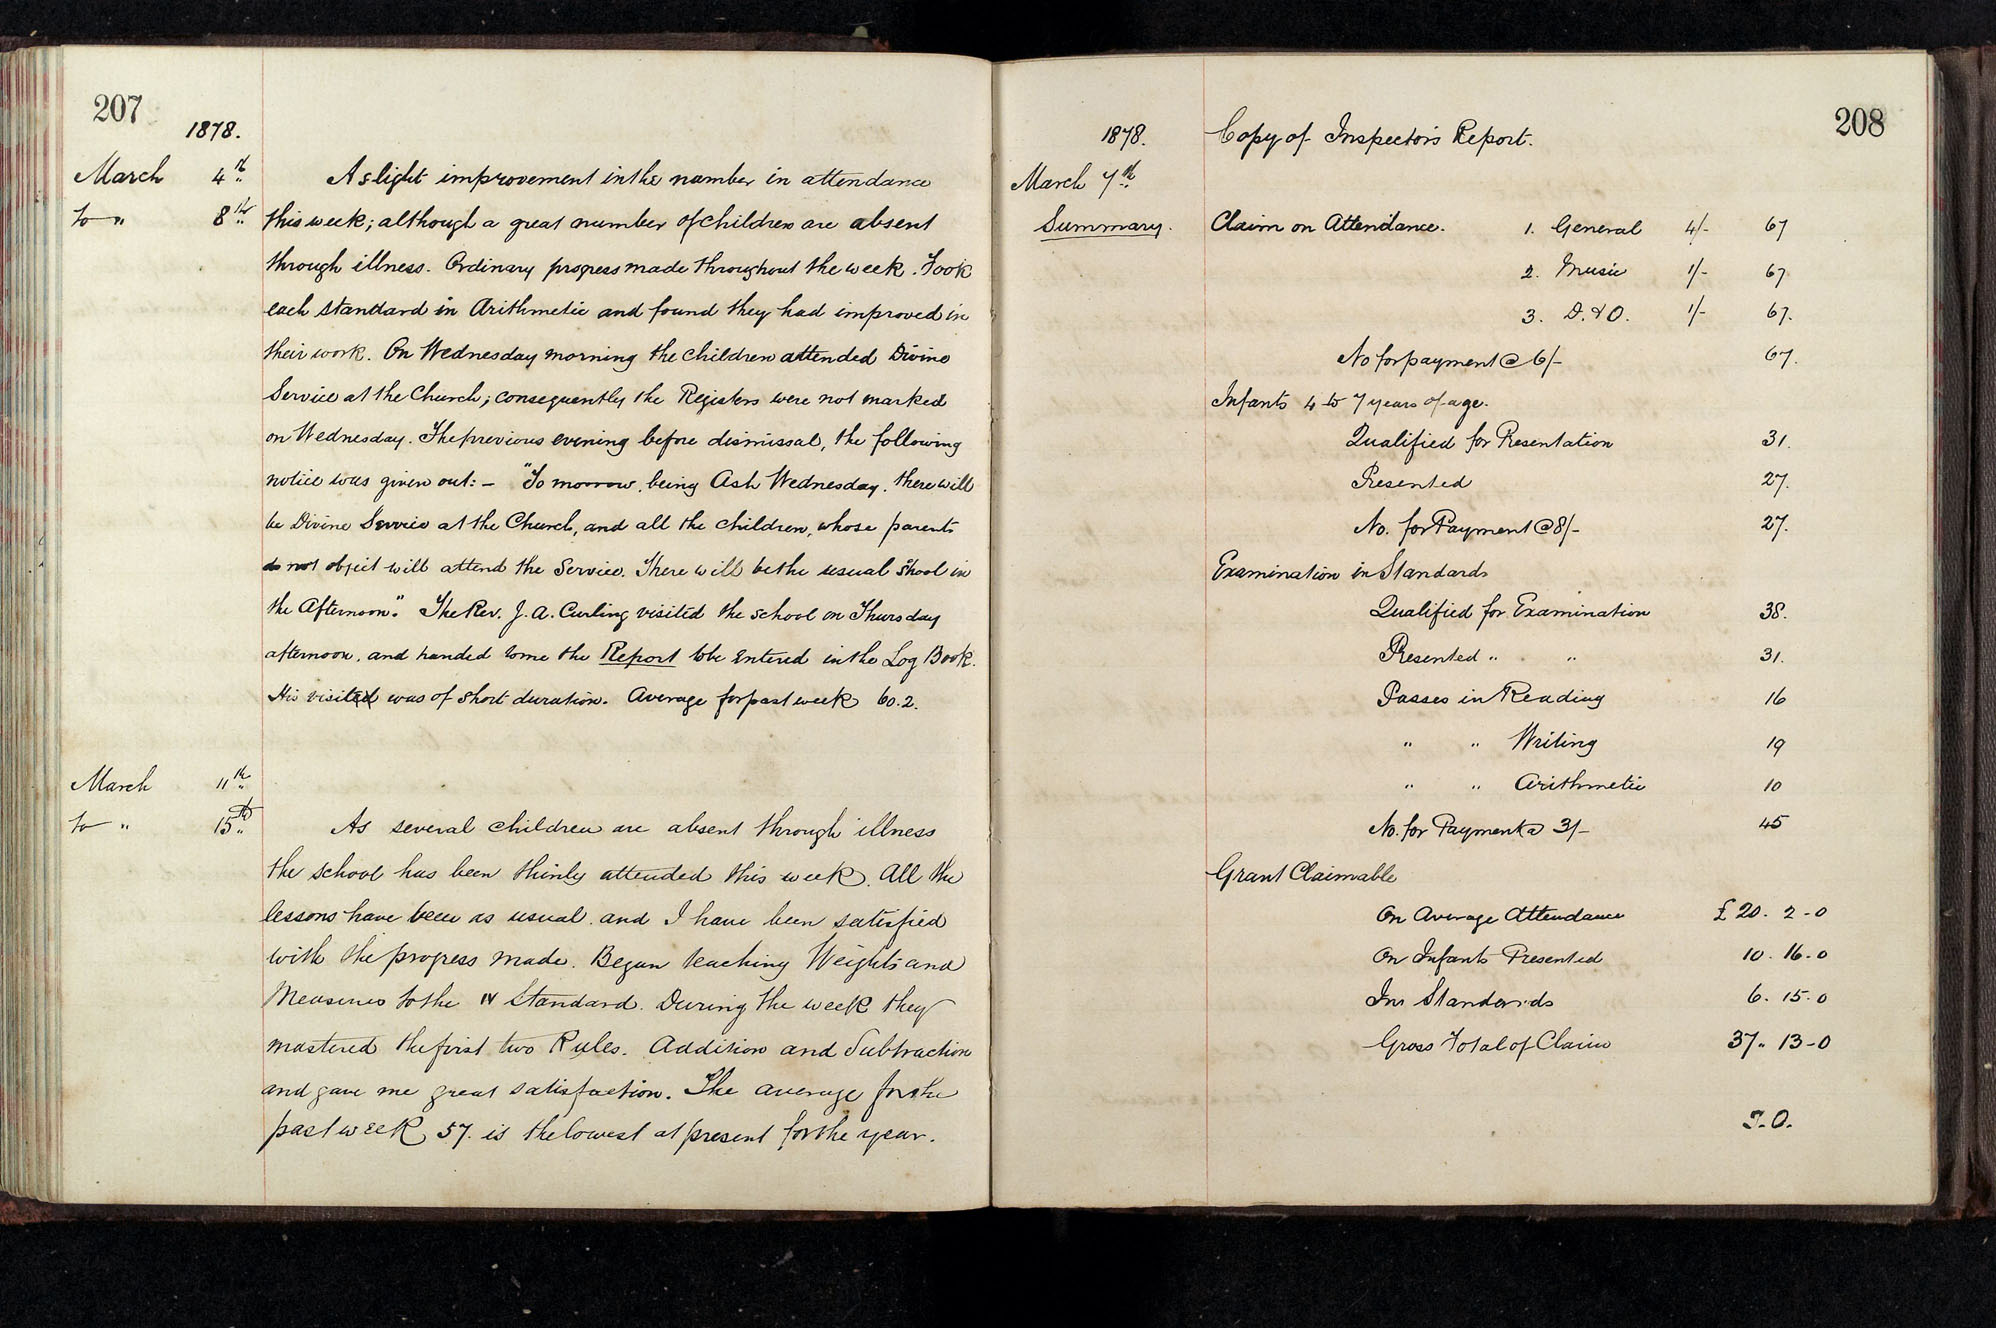 207
1878.
March 4th A slight improvement in the number in attendance
to " 8th this week; although a great number of children are absent
through illness. Ordinary progress made throughout the week. Took
each standard in Arithmetic and found they had improved in
their work. On Wednesday morning the children attended Divine
Service at the Church; consequently the Registers were not marked
on Wednesday. The previous evening before dismissal, the following
notice was given out:- "To morrow, being Ash Wednesday, there will
be Divine Service at the Church, and all the children, whose parents
do not object will attend the Service. There will be the usual Shool in
the Afternoon." The Rev. J. A. Curling visited the school on Thursday
afternoon, and handed to me the Report to be entered in the Log Book.
His visited was of short duration. Average for past week 60.2.
March 11th
to " 15th As several children are absent through illness
the school has been thinly attended this week. All the
lessons have been as usual and I have been satisfied
with the progress made. Began teaching Weights and
Measures to the IV Standard. During the week they
mastered the first two Rules. Addition and Subtraction
and gave me great satisfaction. The average for the
past week 57. is the lowest at present for the year.
208
1878. Copy of Inspector's Report.
March 7th
Summary. Claim on Attendance. 1. General 4/- 67
2. Music 1/- 67
3. D. & O. 1/- 67.
No for payment @ 6/- 67.
Infants 4 to 7 years of age.
Qualified for Presentation 31.
Presented 27.
No. for Payment @ 8/- 27.
Examination in Standards
Qualified for Examination 38.
Presented " " 31.
Passes in Reading 16
" " Writing 19
" " Arithmetic 10
No. for Payment @ 3/- 45
Grant Claimable
On Average Attendance £20. 2-0
On Infants Presented 10. 16-0
In Standards 6. 15-0
Gross Total of Claim 37. 13-0
T.O.